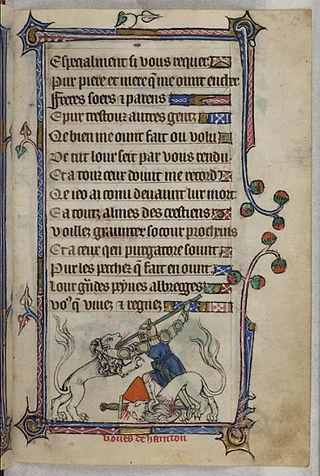 Especialment si vous requer
Pur piere et mere q̃ me ount
Freres soers ⁊ parens
E pur trestouz autres gentz
Qe bien me ount fait ou
De tut lour seit par vous rendu
Et a touz ceux dount me record
Qe ieo ai conu devaunt lur mort
E a toutz almes des crestiens
Voillez graunter socour procheins
Et a ceux qen purgatore sount
Pur les pechez q̃ fait en ount
Lour gñdes peynes alleggez
vo⁹ q̃ viuez ⁊ regnez
boues de hamtoun